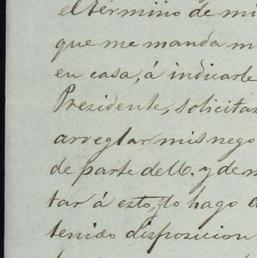 el termino de mi
que me manda m
en casa, á indicarle
Presidente, solicitar
arreglar mis nego
de parte del U. y de m
tar á esto, lo hago d
tenido disposicion